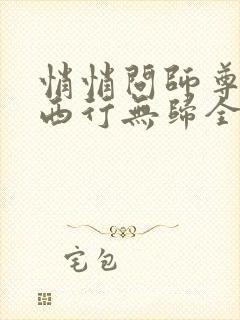 悄悄問師尊
西行無歸全
宅包